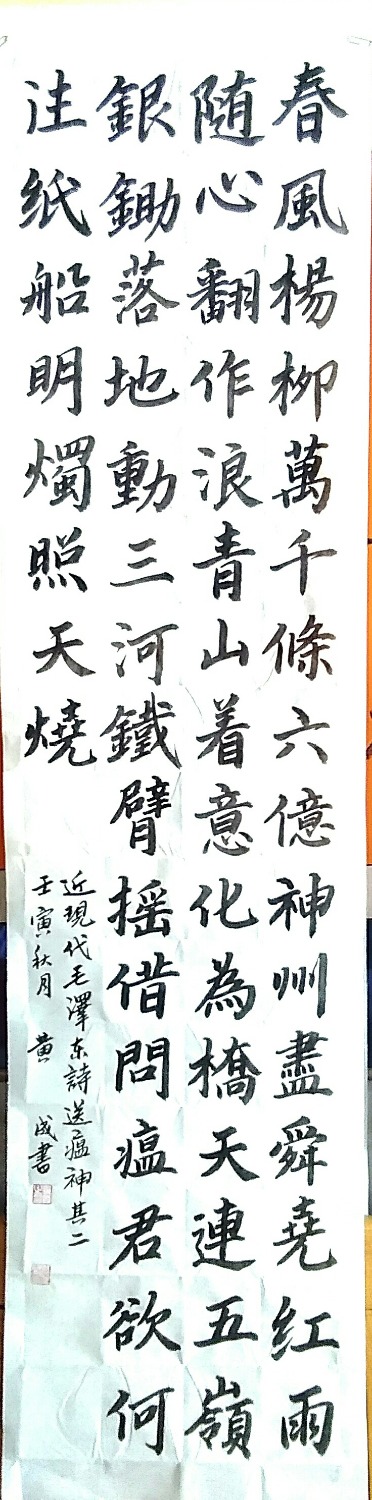 春風楊柳萬千條六億神州盡舜堯红雨
随心翻作浪青山着意化為橋天連五嶺
銀鋤落地動三河鐵臂摇借問瘟君欲何
注纸船明燭照天燒
近現代毛澤东詩送瘟神其二
壬寅秋月 黄 成書